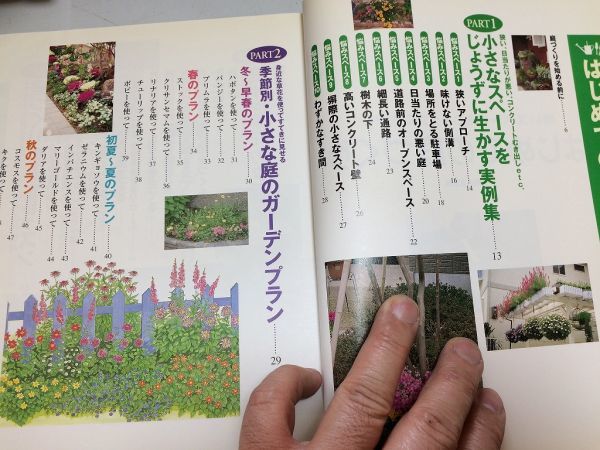 はじめての
庭づくりを始める前に……6
PART1
狭い、日当たりが悪い、コンクリートむき出しetc.
小さなスペースを
じょうずに生かす実例集……13
悩みスペース1 狭いアプローチ……14
悩みスペース2 味けない側溝……16
悩みスペース3 場所をとる駐車場……18
悩みスペース4 日当たりの悪い庭……20
悩みスペース5 道路前のオープンスペース……22
悩みスペース6 細長い通路……23
悩みスペース7 樹木の下……24
悩みスペース8 高いコンクリート壁……26
悩みスペース9 塀際の小さなスペース……27
悩みスペース10 わずかなすき間……28
PART2
身近な草花を使ってすてきに見せる
季節別・小さな庭のガーデンプラン……29
冬〜早春のプラン……30
ハボタンを使って……31
パンジーを使って……32
プリムラを使って……33
春のプラン……34
ストックを使って……35
クリサンセマムを使って……36
リナリアを使って……37
を使って……38
ポピーを使って……39
初夏〜夏のプラン……40
キンギョソウを使って……41
ゼラニウムを使って……42
インパチエンスを使って……43
マリーゴールドを使って……44
ダリアを使って……45
秋のプラン……46
コスモスを使って……47
キクを使って